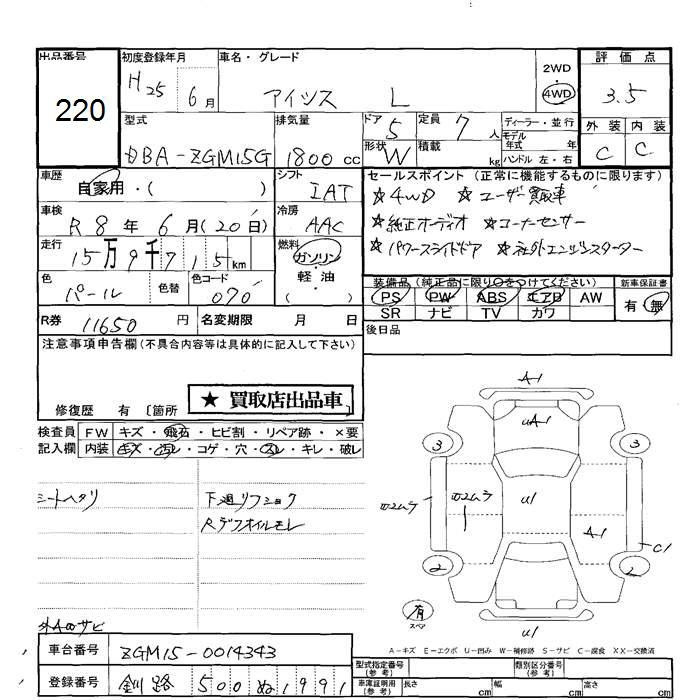 出品番号
220
初度登録年月
H25 6月
車名・グレード
アイシス L
2WD
・
4WD
評価点
3.5
型式
DBA-ZGM15G
排気量
1800 cc
ドア
5
形状
W
定員
7 人
積載
kg
ディーラー・並行
モデル
年式 年
ハンドル 左・右
外装 内装
C C
車歴
自家用・( )
シフト
IAT
セールスポイント (正常に機能するものに限ります)
☆4WD ☆ユーザー買取車
☆純正オーディオ ☆コーナーセンサー
☆パワースライドドア ☆社外エンジンスターター
車検
R8年6月(20日)
冷房
AAC
走行
15万9千715km
燃料
ガソリン
・
軽・油
( )
色
パール
色替
色コード
070
装備品(純正品に限り○をつけてください)
PS PW ABS エアB AW
SR ナビ TV カワ
新車保証書
有 無
R券 11650 円
名変期限 月 日
後日品
注意事項申告欄(不具合内容等は具体的に記入して下さい)
修復歴 有 〔箇所
★ 買取店出品車
検査員
記入欄
FW キズ・飛石・ヒビ割・リペア跡・×要
内装 キズ・汚レ・コゲ・穴・スレ・キレ・破レ
シートヘタリ
下廻リフショク
Rデフオイルモレ
外A⁠サビ
A1
uA1
3
3
u1
A1
C1
2
2
有
スペア
u1
A-キズ E-エクボ U-凹み W-補修跡 S-サビ C-腐食 XX-交換済
車台番号
ZGM15-0014343
登録番号
釧路 500 ぬ 1991
型式指定番号
(参考)
類別区分番号
(参考)
車庫証明用
(参考)
長さ cm
幅 cm
高さ cm